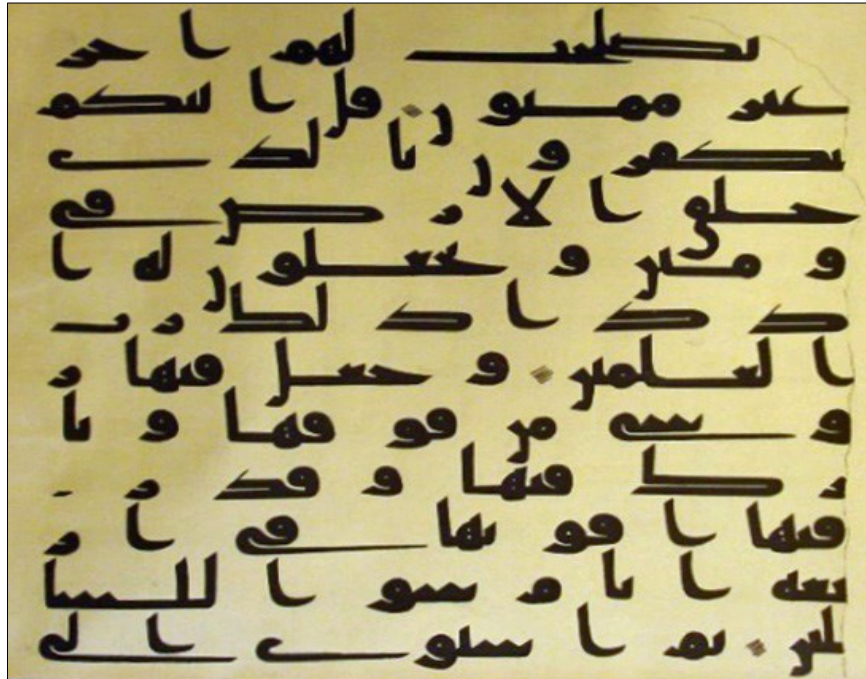 لصلحت لهم اجر
غير ممنون قل ائنكم
لتكفرون بالذي
خلق الارض في
يومين وتجعلون له ا
ندد اذلك رب
العلمين وجعل فيها ر
وسي من فوقها وبا
رك فيها وقدر
فيها اقوتها في ار
بعة ايام سوا للسا
ئلين ثم استوى الى